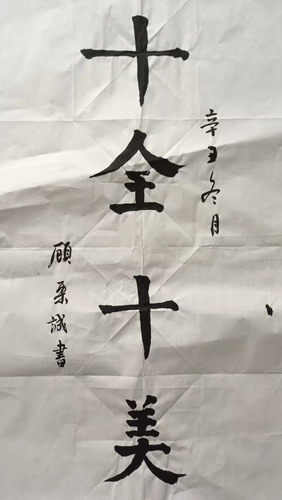 辛丑冬月
十全十美
顾栗诚书